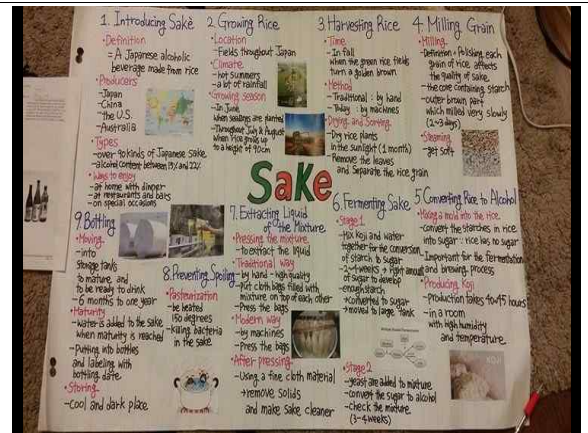 1. Introducing Sakè
•Definition
= A Japanese alcoholic
beverage made from rice
•Producers
-Japan
-China
-the U.S.
-Australia
•Types
-over 90 kinds of Japanese Sake
-alcohol content between 13% and 22%
•Ways to enjoy
-at home with dinner
-at restaurants and bars
-on special occasions
2 Growing Rice
•Location
-Fields throughout Japan
•Climate
-hot summers
-a lot of rainfall
•Growing season
-In June,
when seedlings are planted
-Throughout July & August
when Rice grows up
to a height of 90cm
3. Harvesting Rice
•Time
-In fall
when the green rice fields
turn a golden brown
•Method
-Traditional : by hand
-Today : by machines
•Drying and Sorting
-Dry rice plants
in the sunlight (1 month)
-Remove the leaves
and separate the rice grain
4. Milling Grain
•Milling
-Definition = Polishing each
grain of rice affects
the quality of sake
-the core containing starch
-outer brown part
which milled very slowly
(2~3 days)
•Steaming
-get soft
Sake
5. Converting Rice to Alcohol
•Mixing a mold into the rice
-convert the starches in rice
into sugar : rice has no sugar
-Important for the fermentation
and brewing process
•Producing Koji
-production takes 40~45 hours
-in a room
with high humidity
and temperature
KOJI
6. Fermenting Sake
•Stage 1
-Mix Koji and water
together for the conversion
of starch to sugar
-2~4 weeks → right amount
of sugar to develop
-enough starch
→ converted to sugar
→ moved to large tank
•Stage 2
-yeast are added to mixture
-convert the sugar to alcohol
-check the mixture
(3~4 weeks)
7. Extracting Liquid
of the Mixture
•Pressing the mixture
-to extract the liquid
•Traditional way
-by hand - high quality
-put cloth bags filled with
mixture on top of each other
-Press the bags
•Modern way
-by machines
-Press the bags
•After pressing
-Using a fine cloth material
→ remove solids
and make sake cleaner
8. Preventing Spoiling
•Pasteurization
-be heated
150 degrees
-killing bacteria
in the sake
9. Bottling
•Moving
-into
storage tanks
to mature and
to be ready to drink
-6 months to one year
•Maturity
-water is added to the sake
when maturity is reached
-putting into bottles
and labeling with
bottling date
•Storing
-cool and dark place